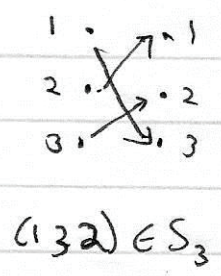 1 1
2 2
3 3
(132) ∈ S₃